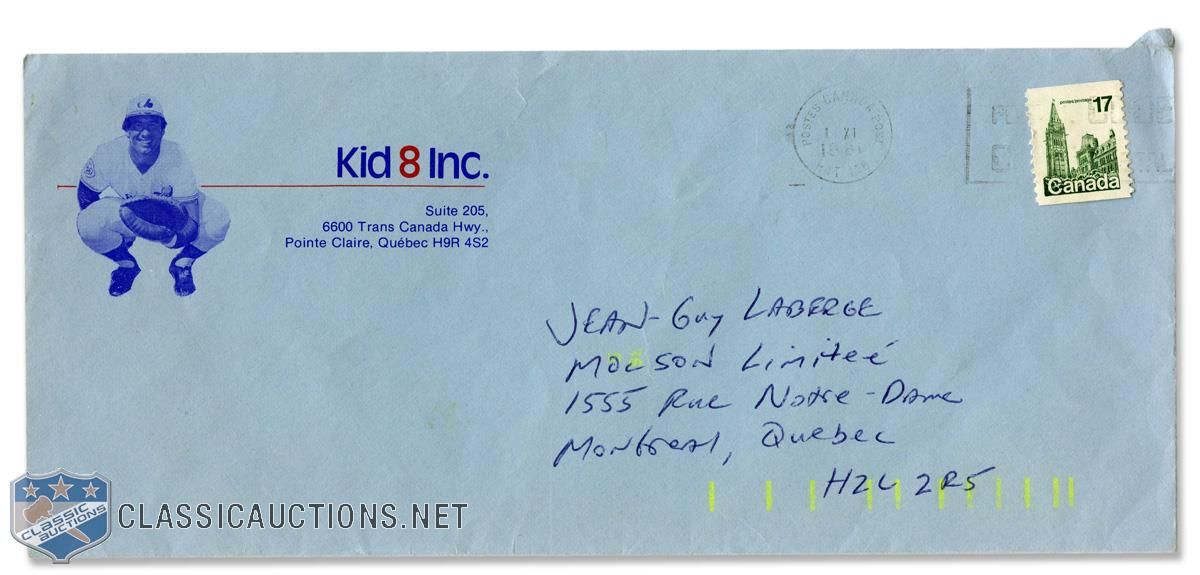 Kid 8 Inc.
Suite 205,
6600 Trans Canada Hwy.,
Pointe Claire, Québec H9R 4S2
POSTES CANADA POST
1 XI
postes/postage
17
Canada
JEAN-GUY LABERGE
MOLSON Limiteé
1555 Rue Notre-Dame
Montreal, Quebec
H2L 2R5
CLASSIC
AUCTIONS
CLASSICAUCTIONS.NET